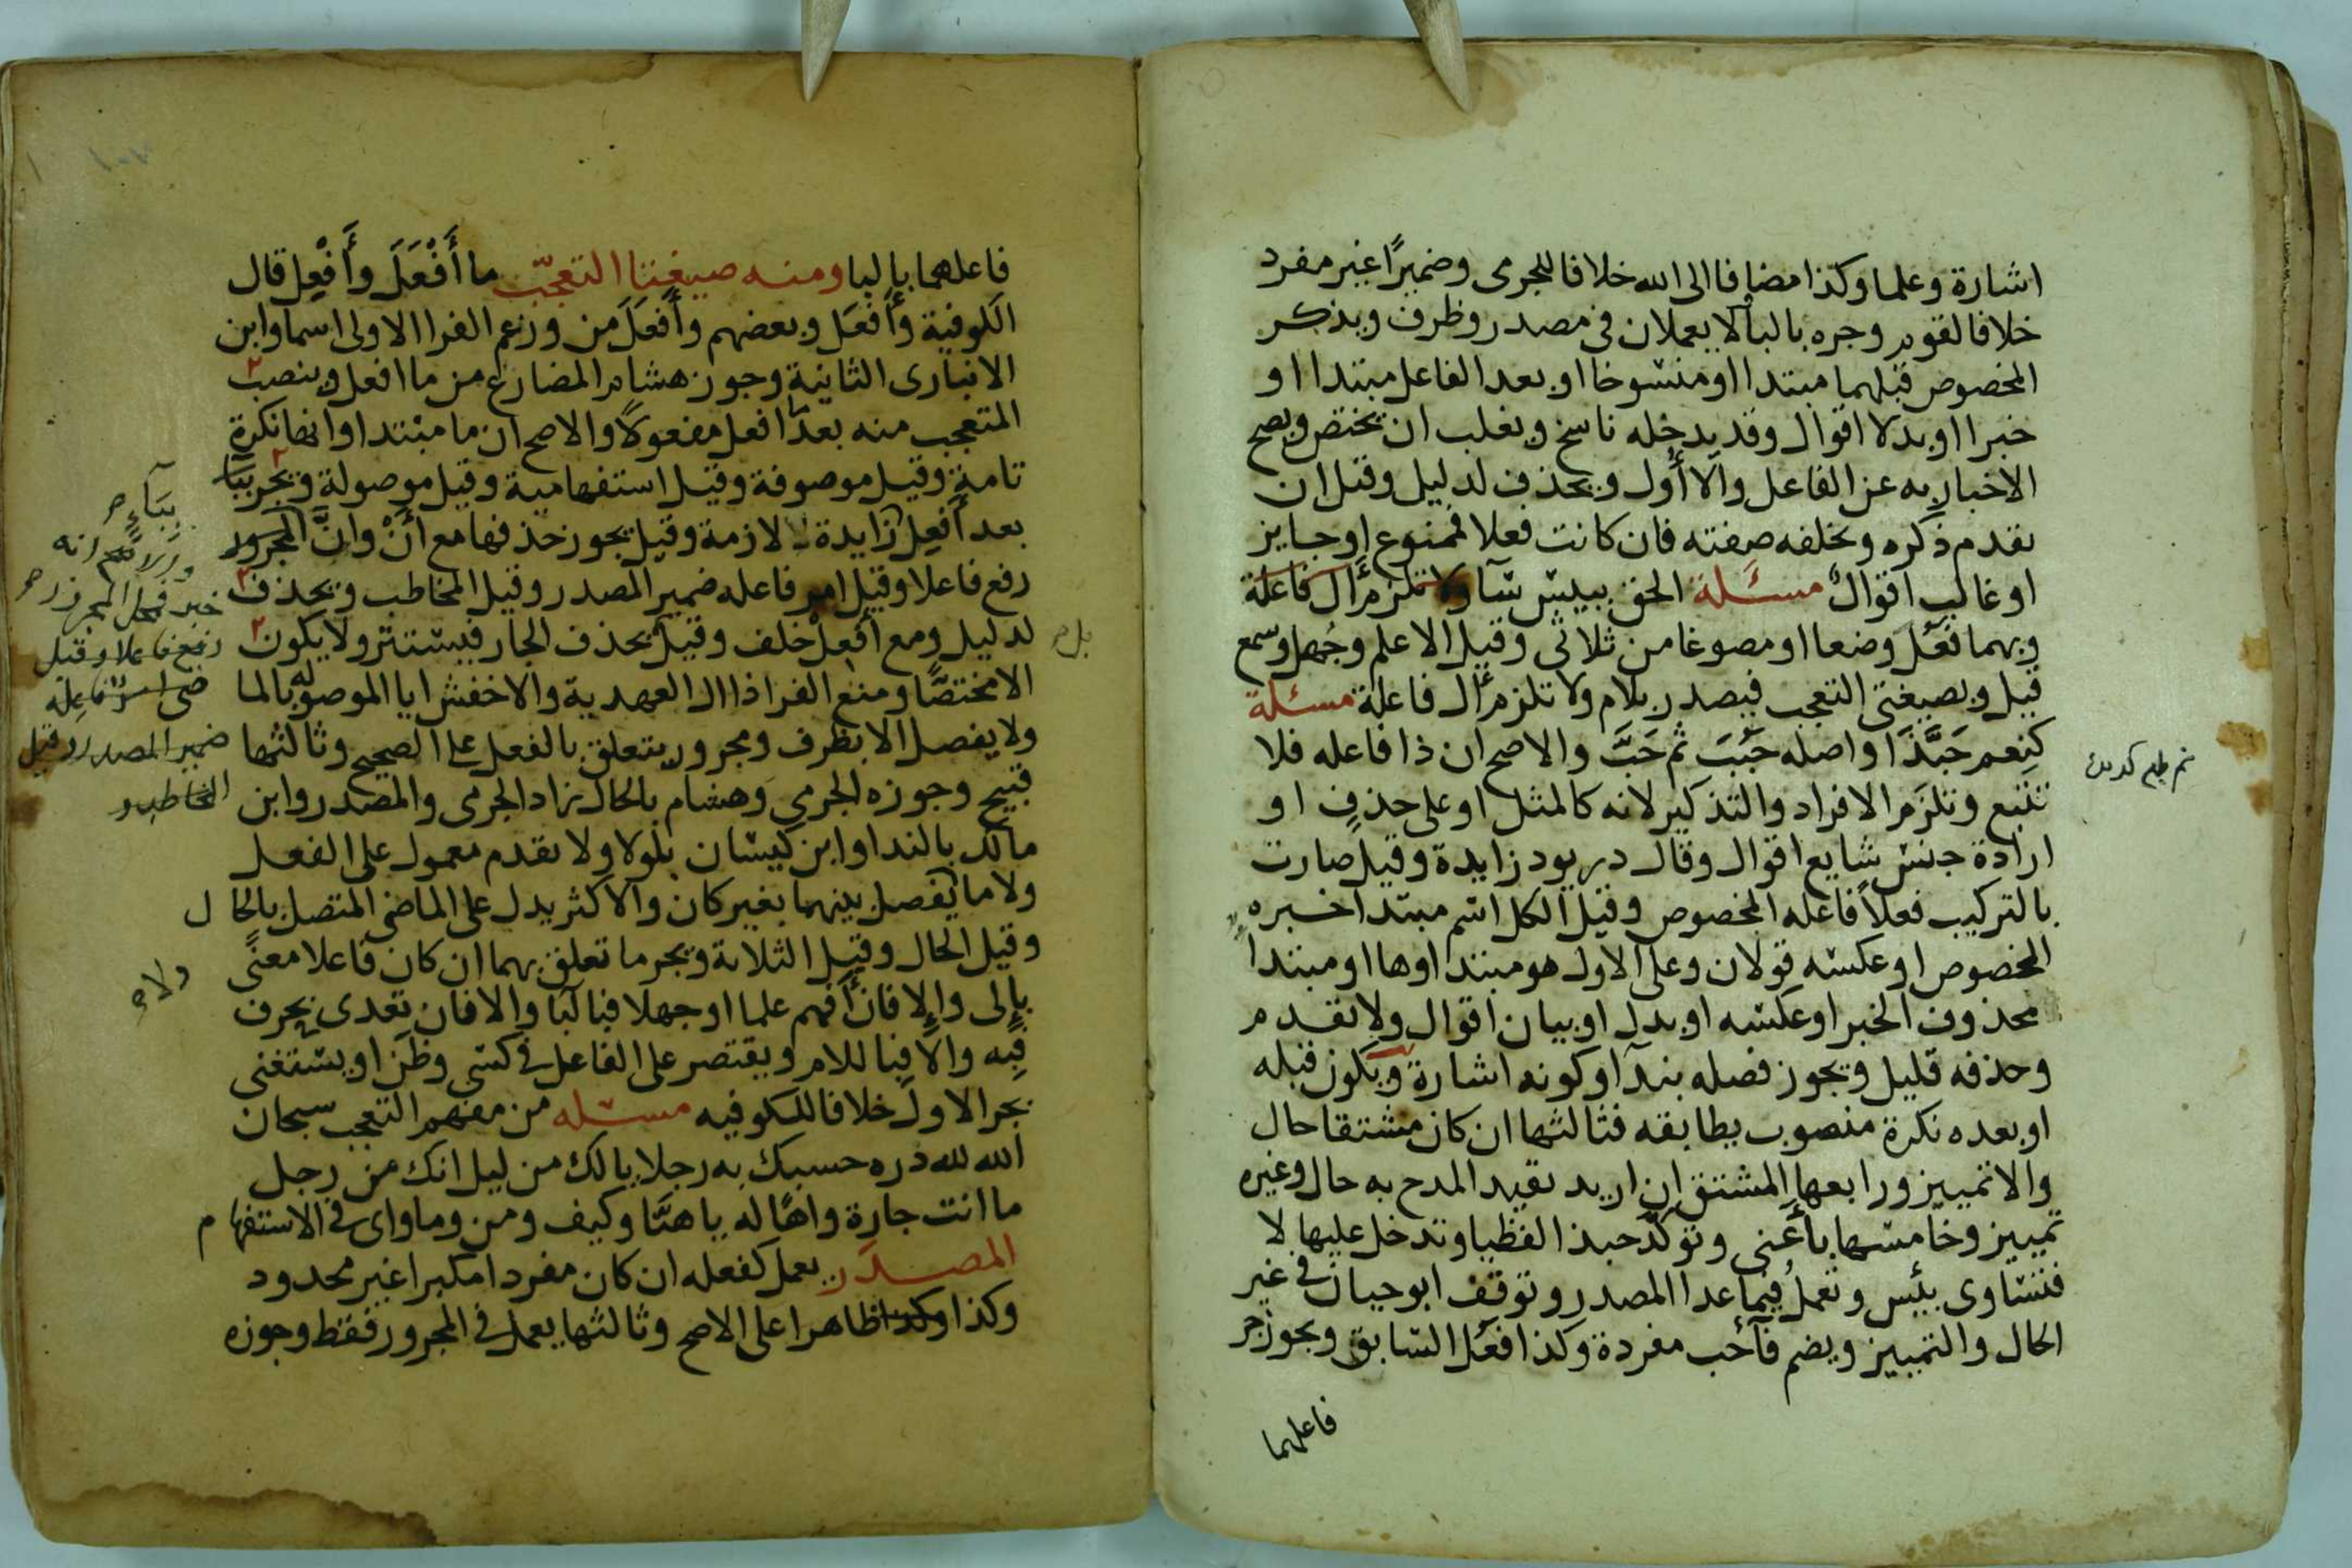 اشارة وعلما وكذا مضافا الى الله خلافا للجرمى وضميرا غير مفرد
خلافا لقوم وجره بالبا لا يعملان فى مصدر وظرف ويذكر
المخصوص قبلهما مبتدا او منسوخا او بعد الفاعل مبتدا او
خبرا او بدلا اقوال وقد يدخله ناسخ ويغلب ان يختص ويصح
الاخبار به عن الفاعل والا أول ويحذف لدليل وقيل ان
تقدم ذكره وتخلفه صفته فان كانت فعلا فممنوع او جايز
او غالب اقوال مسئلة الحق ببيس سآ ولا تلزم أل فاعلة
وبهما فَعُل وضعا او مصوغا من ثلاثى وقيل الا علم وجهل وسمع
قيل وبصيغتى التعجب فيصدر بلام ولا تلزم أل فاعلة مسئلة
كنِعم حَبَّذَا واصله حَبُبَ ثم حَبَّ والاصح ان ذا فاعله فلا
تتبع وتلزم الافراد والتذكير لانه كالمثل او على حذف او
ارادة جنس شايع اقوال وقال دريود زايدة وقيل صارت
بالتركيب فعلاً فاعله المخصوص وقيل الكل اسم مبتدا خبره
المخصوص او عكسه قولان وعلى الاول هو مبتدا وها او مبتدا
محذوف الخبر او عكسه او بدل او بيان اقوال ولا تقدم
وحذفه قليل ويجوز فصله بندآ وكونه اشارة ويكون قبله
او بعده نكرة منصوب يطابقه فثالثها ان كان مشتقا حال
والا تمييز ورابعها المشتق ان اريد تقيد المدح به حال وغيره
تمييز وخامسها بأعنى وتؤكد حبذا لفظيا وتدخل عليها لا
فتساوى بئس وتعمل فيما عدا المصدر وتوقف ابو حيان فى غير
الحال والتمييز ويضم فآ حب مفردة وكذا فعُل السابق ويجوز جر
فاعلهما
فاعلهما بالبا ومنه صيغتا التعجّب ما أَفْعَلَ وأَفْعِل قال
الكوفية وأَفعَل وبعضهم وأَفعَلَ من وزعم الفرا الاولى اسما وابن
الانبارى الثانية وجوز هشام المضارع من ما افعل وينصب
المتعجب منه بعد افعل مفعولاً والاصح ان ما مبتدا وانها نكرة
تامة وقيل موصوفة وقيل استفهامية وقيل موصولة ويجر ببا
بعد أَفعِل زايدة لازمة وقيل يجوز حذفها مع أَنْ وانَّ المجرور
رفع فاعلا وقيل امر فاعله ضمير المصدر وقيل المخاطب ويحذف
لدليل ومع افعِلْ خلف وقيل يحذف الجار فيستتر ولا يكون
الا مختصًّا ومنع الفرا ذا ال العهدية والاخفش ايا الموصوله بالما
ولا يفصل الا بظرف ومجرور يتعلق بالفعل على الصحيح وثالثها
قبيح وجوزه الجرمي وهشام بالحال زاد الجرمى والمصدر وابن
مالك بالندا وابن كيسان بلولا ولا تقدم معمول على الفعل
ولا ما يفصل بينهما بغير كان والاكثر يدل على الماضى المتصل بالحال
وقيل الحال وقيل الثلاثة ويجر ما تعلق بهما ان كان فاعلا معنًى
بإلى والا فان أفهم علما او جهلا فبالبا والا فان تعدى بحرف
فبه والا فباللام ويقتصر على الفاعل فى كسى وظن او يستغنى
بجر الاول خلافا للكوفيه مسئله من مفهم التعجب سبحان
الله لله دره حسبك به رجلا يالك من ليل انك من رجل
ما انت جارة واهًا له يا هنَّا وكيف ومن وما واى فى الاستفهام
المصدر يعمل كفعله ان كان مفردا مكبرا غير محدود
وكذا وكذا ظاهرا على الاصح وثالثها يعمل فى المجرور فقط وجوزه
ببآء
خبر فمحل المجرور
رفع فاعلا وقيل
ضمير المصدر وقيل
المخاطب و
ولا